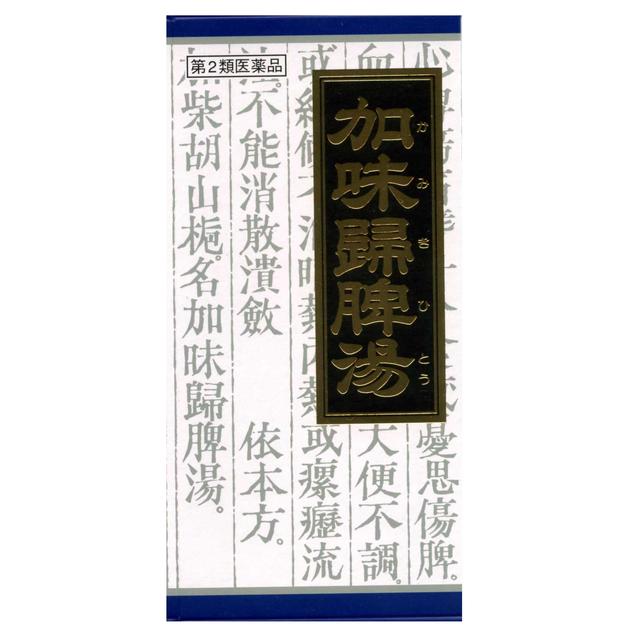 第2類医薬品
加味歸脾湯
かみきひとう
憂思傷脾。
大便不調。
或瘰癧流
注。不能消散潰斂
依本方。
加柴胡山梔。名加味歸脾湯。